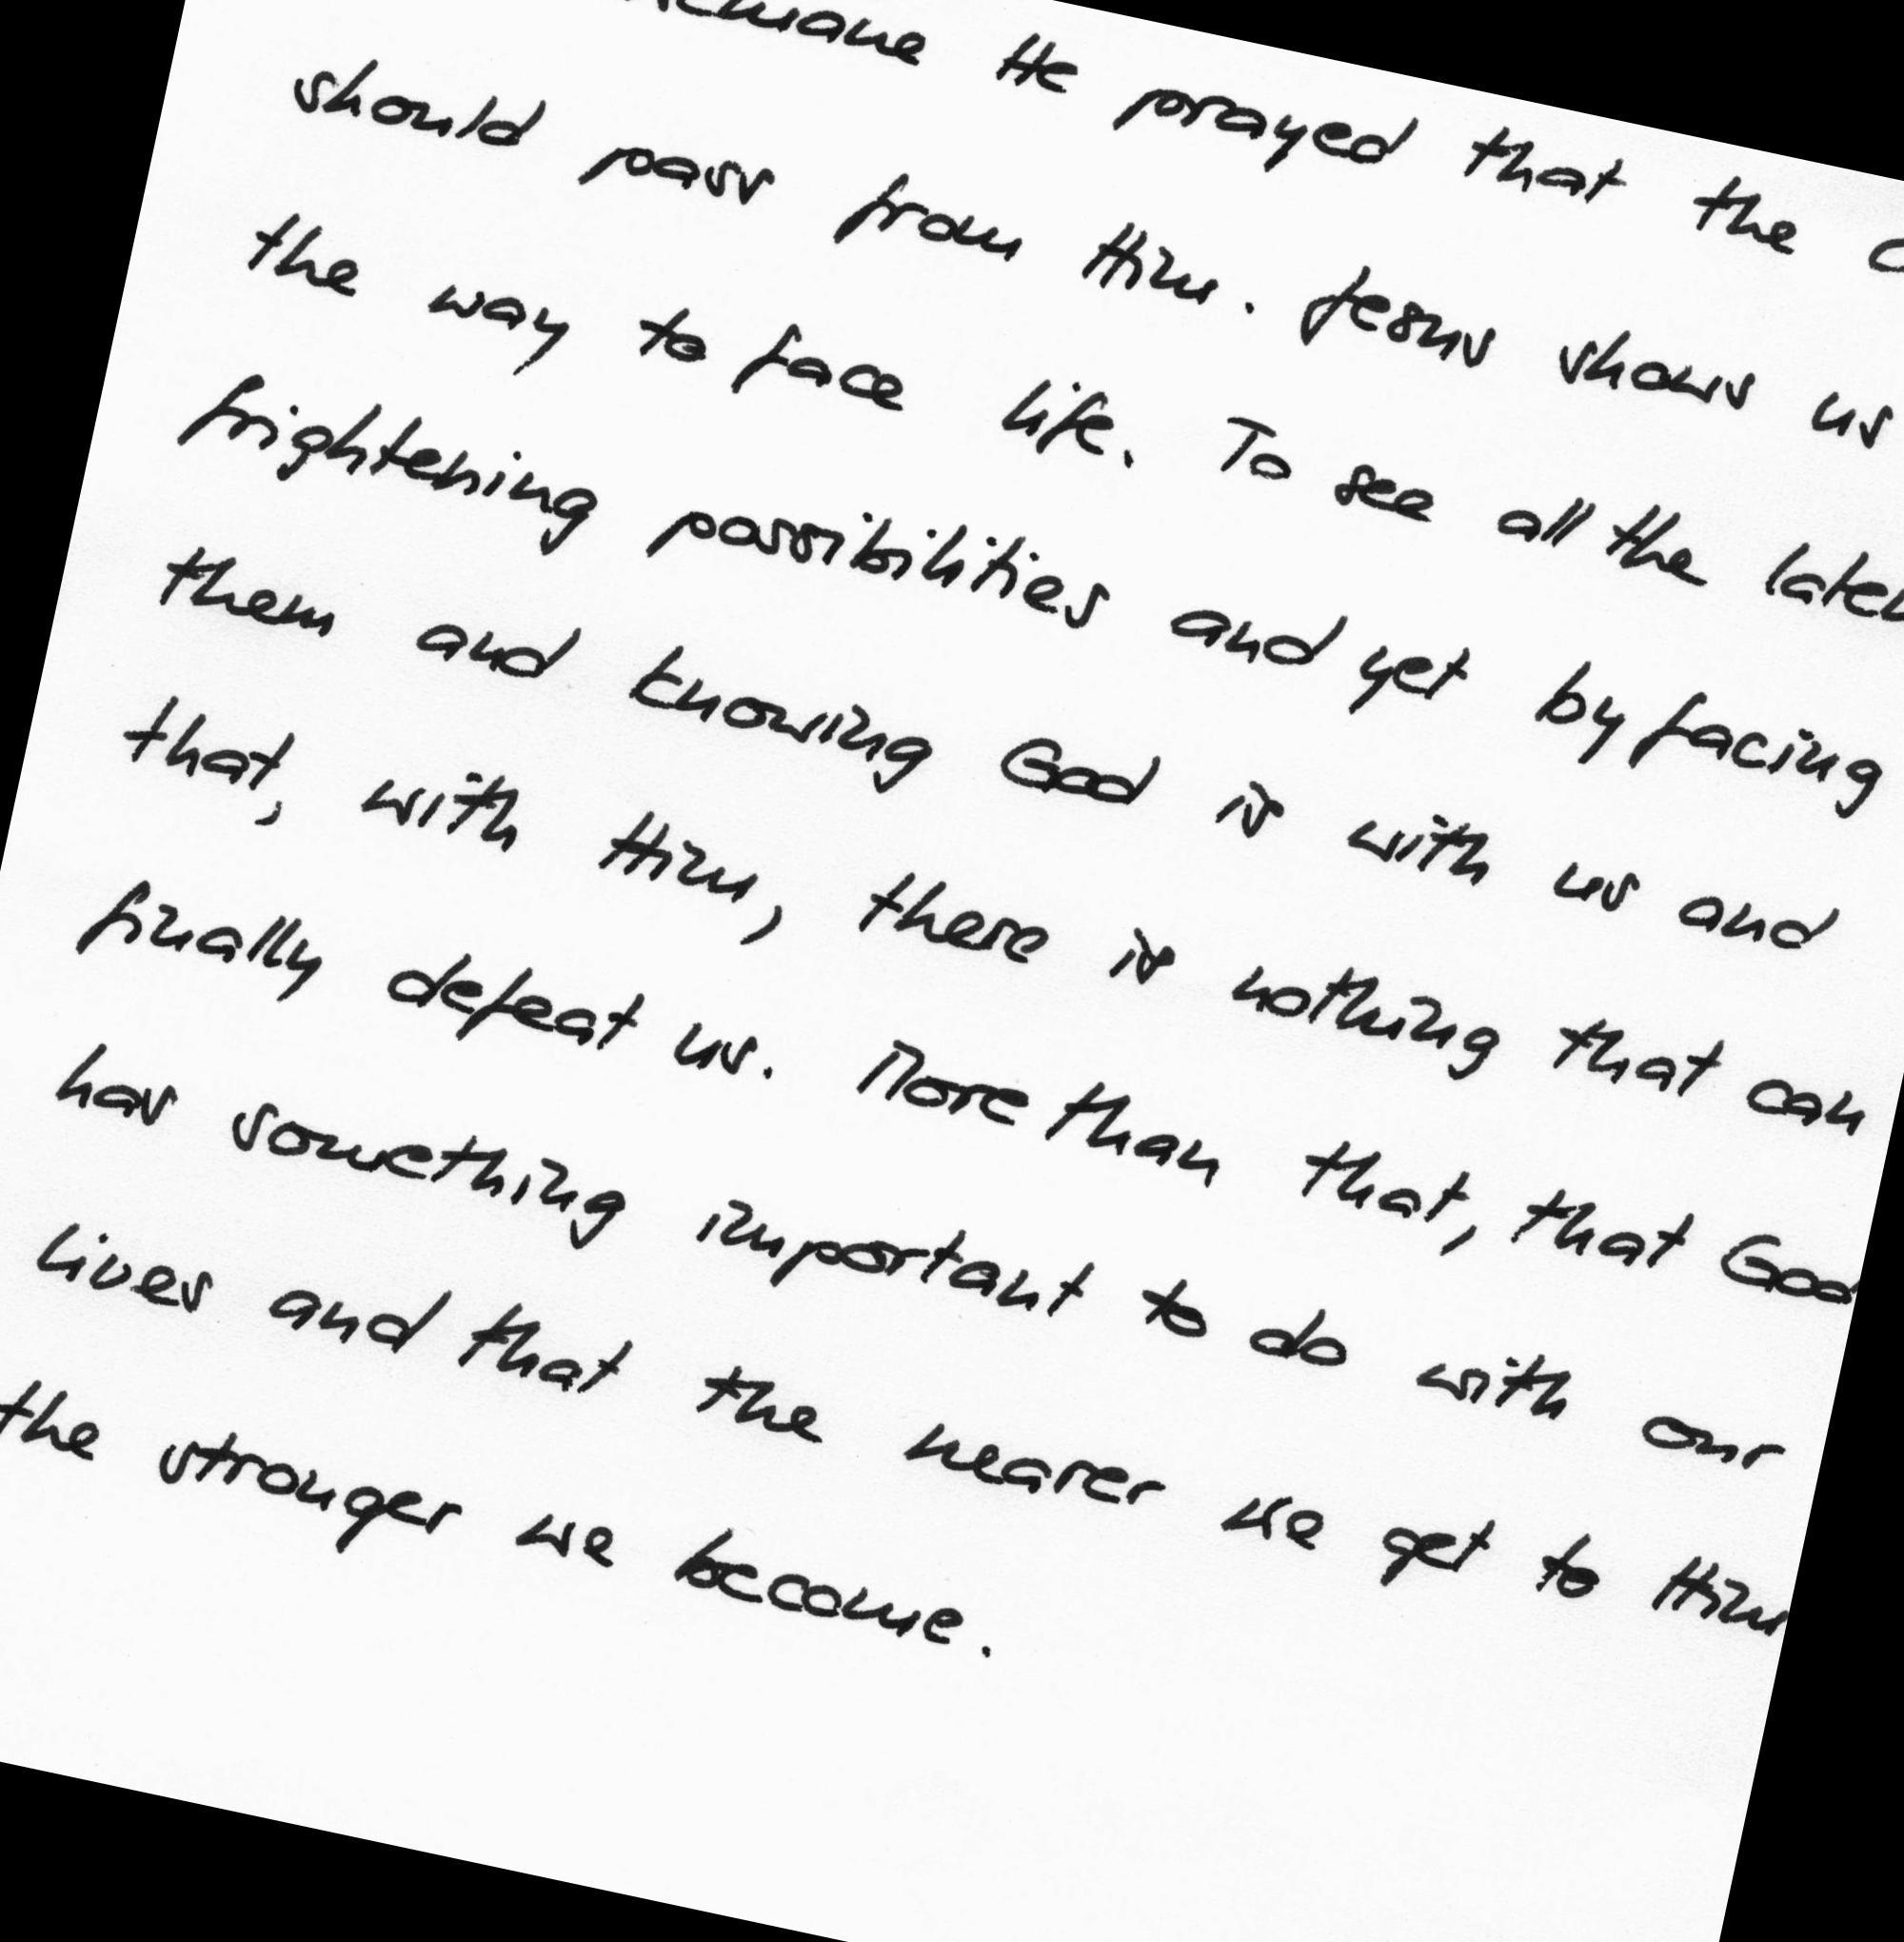 He prayed that the
should pass from Him. Jesus shows us
the way to face life. To see all the
frightening possibilities and yet by facing
them and knowing God is with us and
that, with Him, there is nothing that can
finally defeat us. More than that, that God
has something important to do with our
lives and that the nearer we get to Him
the stronger we become.